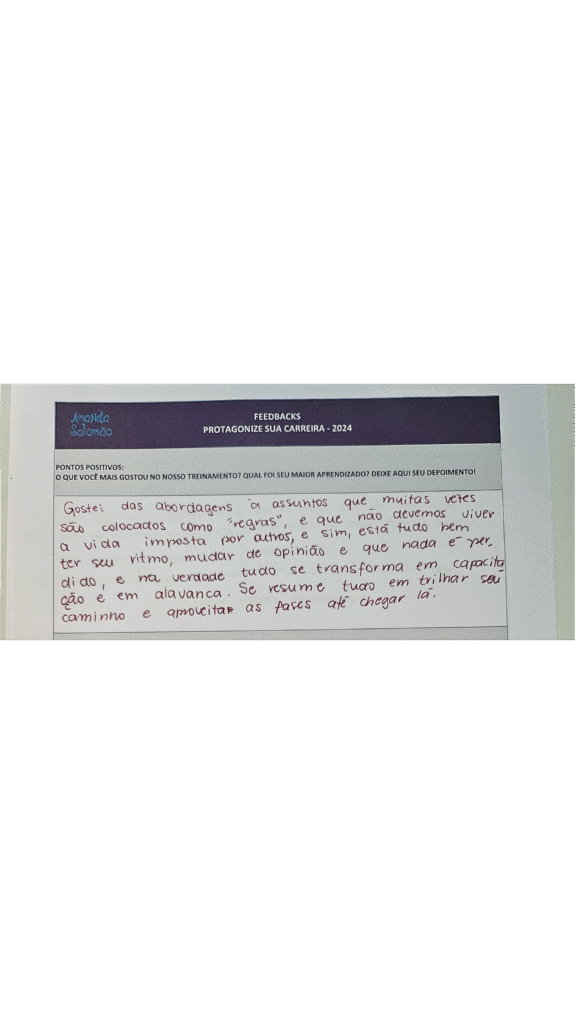 Amanda
Salomão
FEEDBACKS
PROTAGONIZE SUA CARREIRA - 2024
PONTOS POSITIVOS:
O QUE VOCÊ MAIS GOSTOU NO NOSSO TREINAMENTO? QUAL FOI SEU MAIOR APRENDIZADO? DEIXE AQUI SEU DEPOIMENTO!
Gostei das abordagens à assuntos que muitas vezes
são colocados como "regras", e que não devemos viver
a vida imposta por outros, e sim, está tudo bem
ter seu ritmo, mudar de opinião e que nada é per_
dido, e na verdade tudo se transforma em capacita_
ção e em alavanca. Se resume tudo em trilhar seu
caminho e aproveitar as fases até chegar lá.